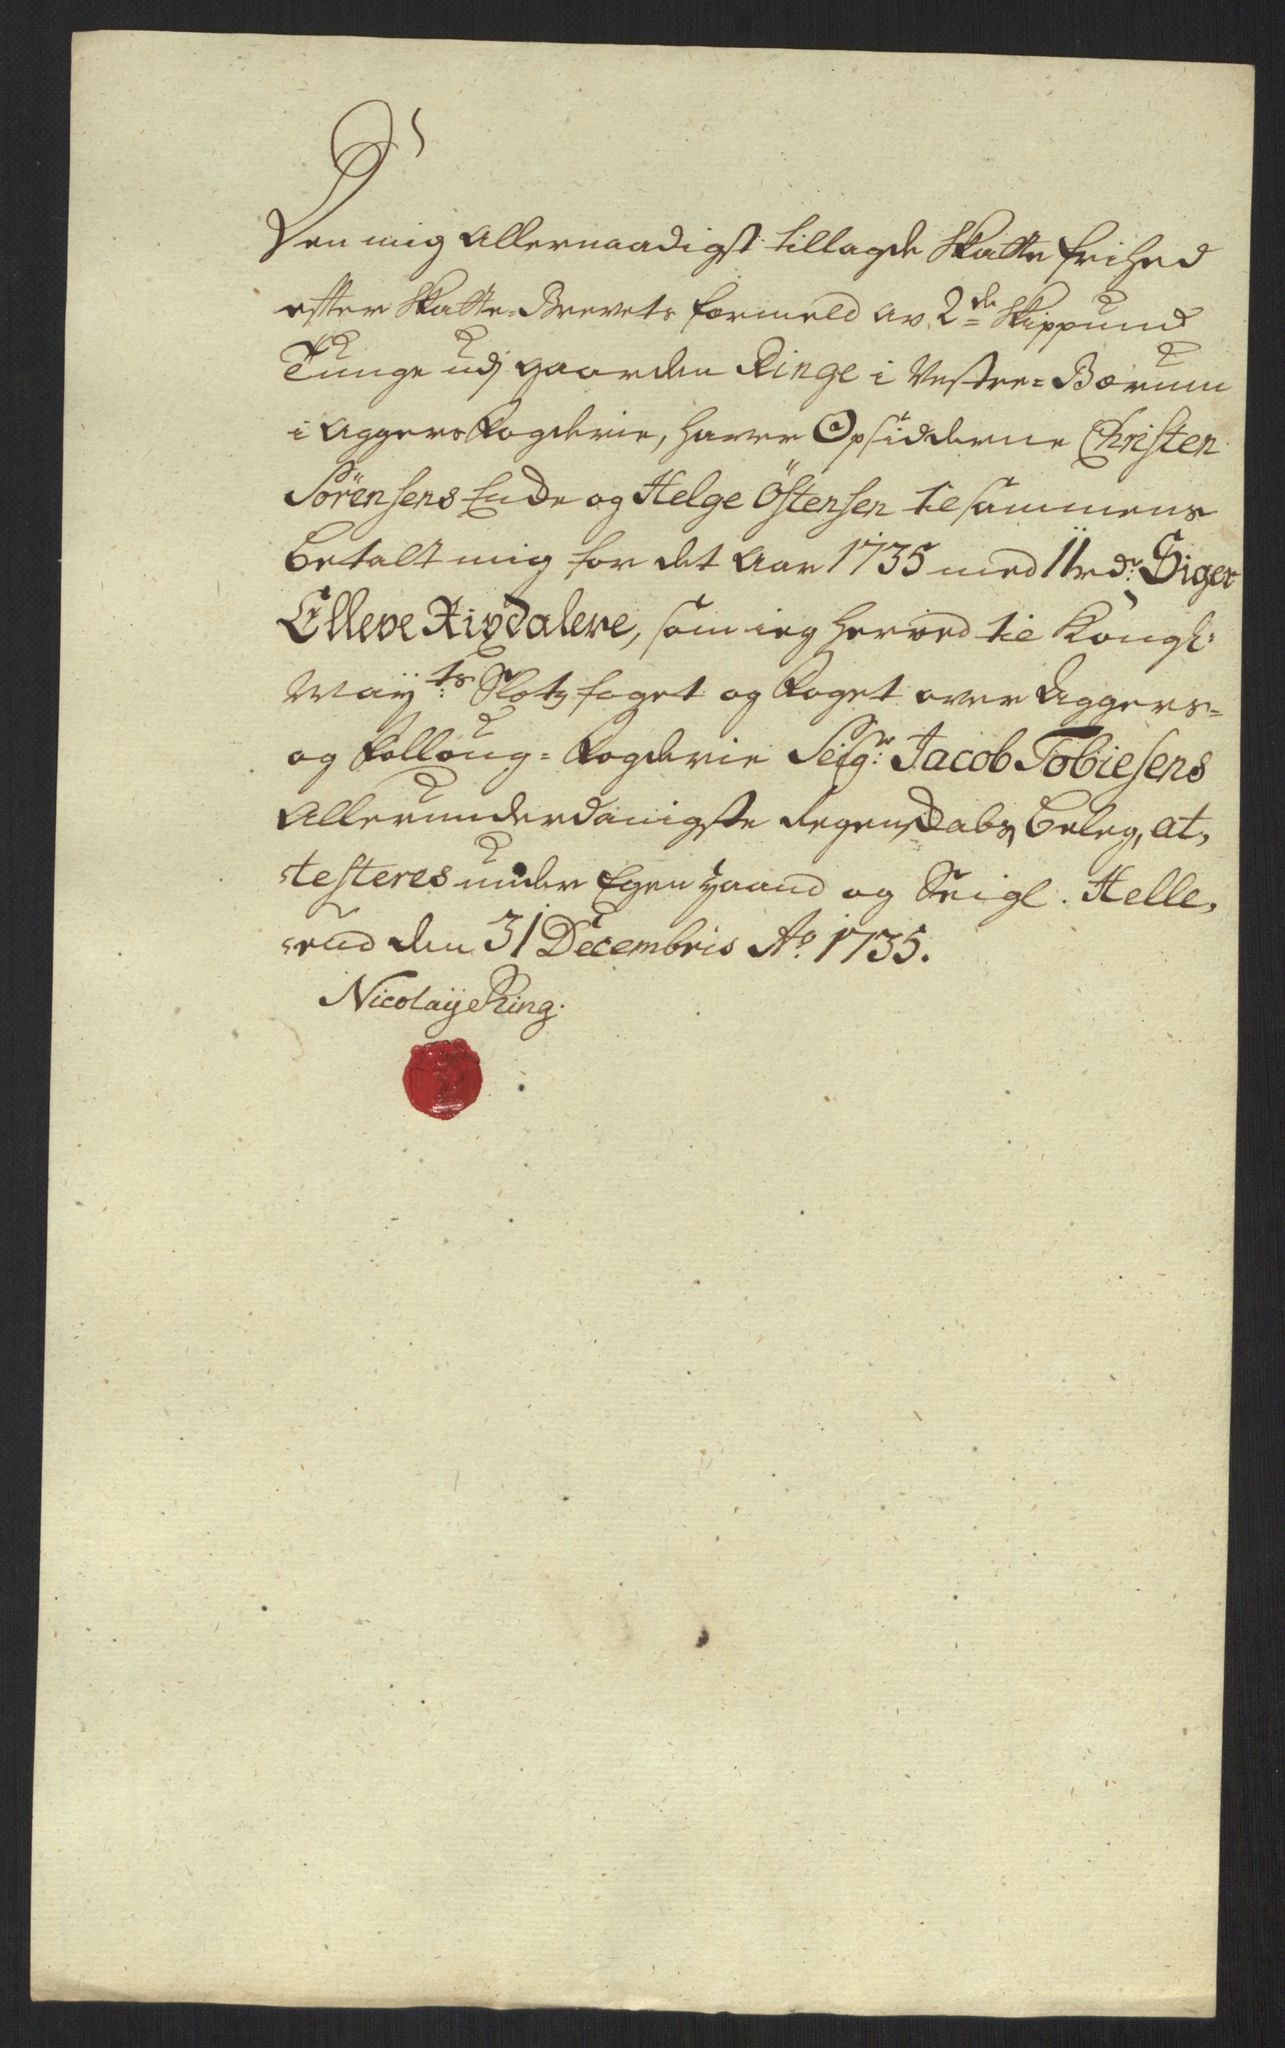 Den mig Allernaadigst tillagde Skatte frihed
efter Skatte-Brevets formeld av 2de Skippund
Tunge udj gaarden Ringe i Vestre-Bærum
i Aggers Fogderie, haver Opsidderne Christen
Sörensens Enke og Helge Östensen tilsammens
betalt mig for det Aar 1735 med 11 rdr. Siger
Elleve Rixdalere, som ieg herved til Kongl:
Mayts Slotz foget og Foget over Aggers-
og Folloug-Fogderie Seigr: Jacob Tobiesens
Allerunderdanigste Regenskabs beleg, at,
testeres under Egen Haand og Seigl. Helle,
rud den 31 Decembris Ao 1735.
Nicolaÿ Ring.